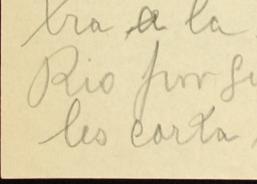 tra a la
Rio por
les carta